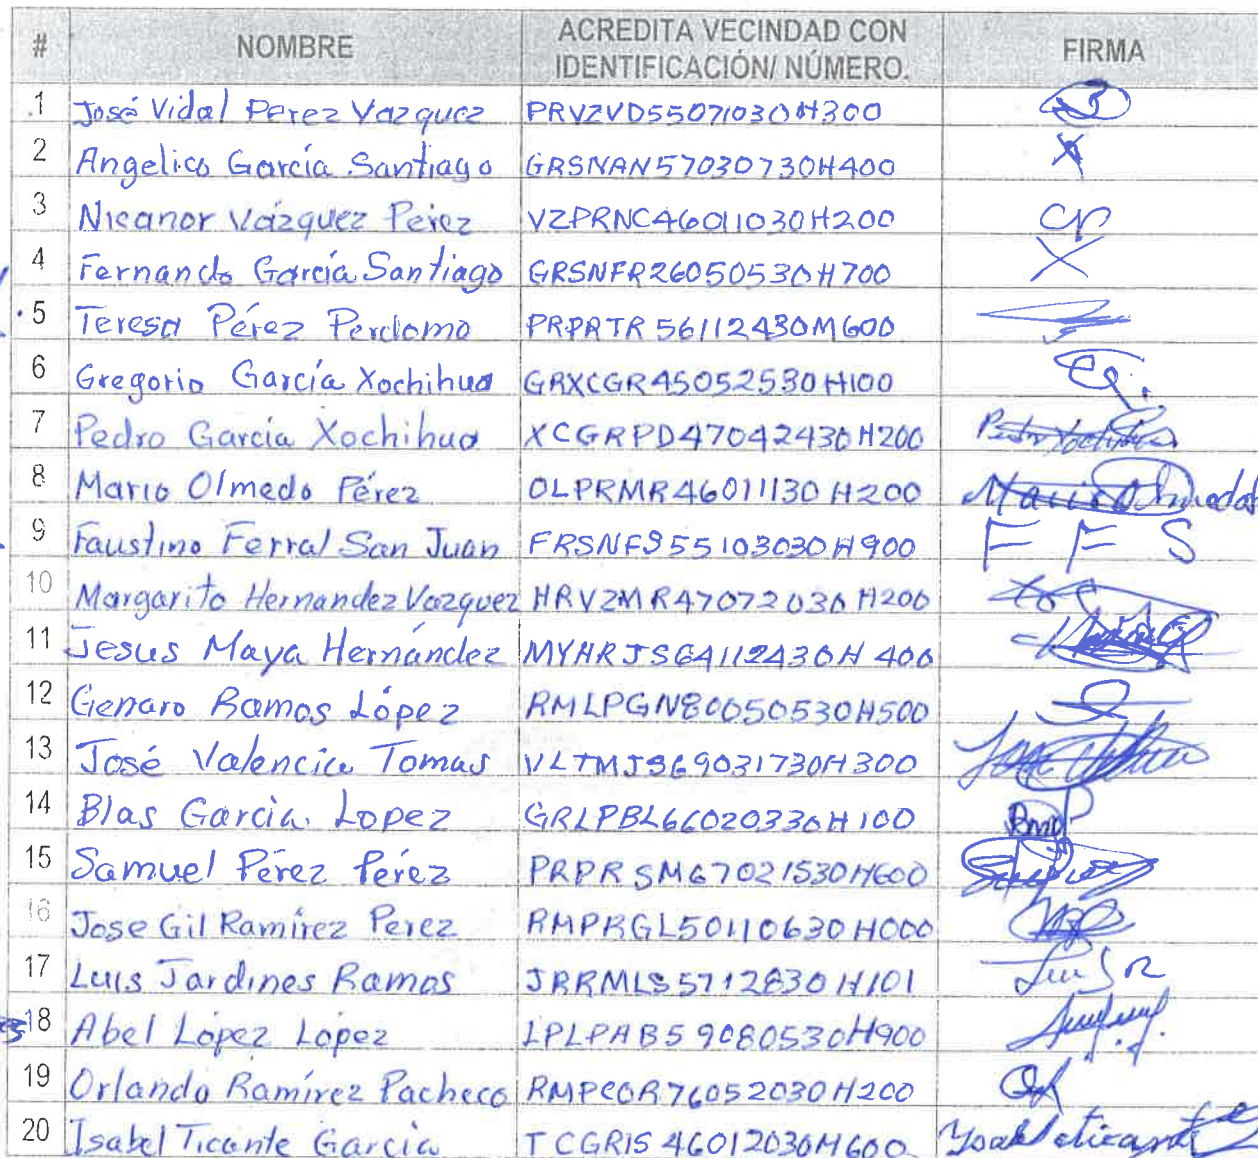 # NOMBRE ACREDITA VECINDAD CON IDENTIFICACIÓN/ NÚMERO. FIRMA
1 José Vidal Perez Vazquez PRVZVD55071030H300
2 Angelico García Santiago GRSNAN57030730H400 X
3 Nicanor Vázquez Pérez VZPRNC46011030H200
4 Fernando García Santiago GRSNFR26050530H700 X
5 Teresa Pérez Perdomo PRPRTR56112430M600
6 Gregorio García Xochihua GRXCGR45052530H100
7 Pedro García Xochihua XCGRPD47042430H200 Pedro Xochihua
8 Mario Olmedo Pérez OLPRMR46011130H200 Mario Olmedo
9 Faustino Ferral San Juan FRSNFS55103030H900 F F S
10 Margarito Hernandez Vazquez HRVZMR47072030H200
11 Jesus Maya Hernández MYHRJS64112430H400
12 Genaro Ramos López RMLPGN80050530H500
13 José Valencia Tomas VLTMJS69031730H300
14 Blas García Lopez GRLPBL66020330H100
15 Samuel Pérez Pérez PRPRSM67021530H600
16 Jose Gil Ramírez Perez RMPRGL50110630H000
17 Luis Jardines Ramos JRRMLS5712830H101
18 Abel López López LPLPAB59080530H900
19 Orlando Ramírez Pacheco RMPCOR76052030H200
20 Isabel Ticante García TCGRIS46012030M600